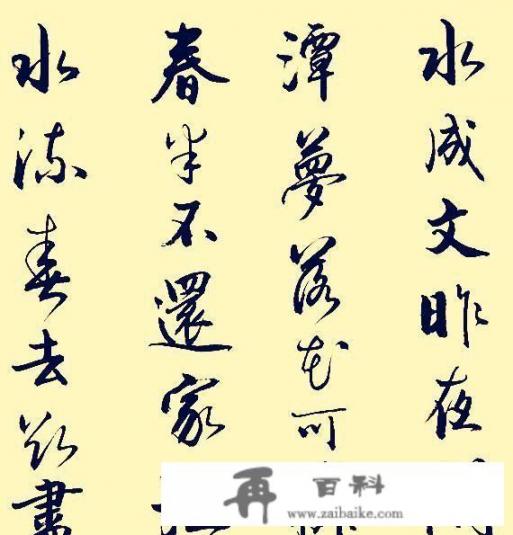 水成文昨夜
潭夢落花可
春半不還家
水流春去欲盡
再 百科
www.zaibaike.com